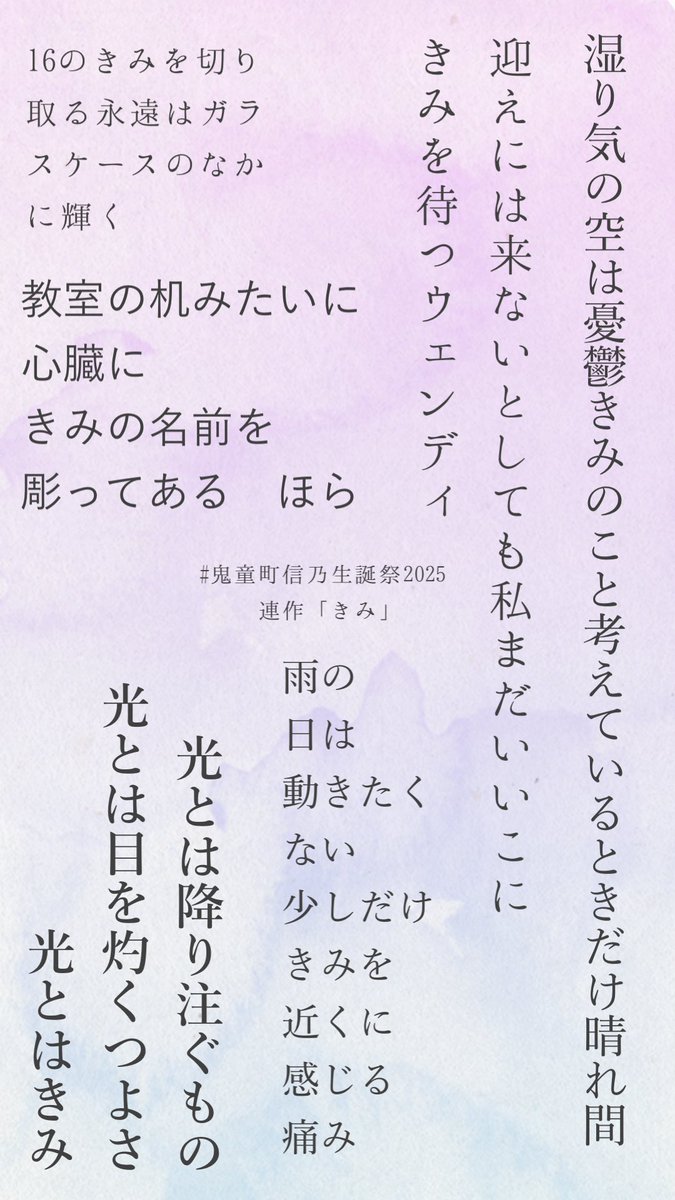 湿り気の空は憂鬱きみのこと考えているときだけ晴れ間
迎えには来ないとしても私まだいいこに
きみを待つウェンディ
16のきみを切り
取る永遠はガラ
スケースのなか
に輝く
教室の机みたいに
心臓に
きみの名前を
彫ってある　ほら
#鬼童町信乃生誕祭2025
連作「きみ」
雨の
日は
動きたく
ない
少しだけ
きみを
近くに
感じる
痛み
光とは降り注ぐもの
光とは目を灼くつよさ
光とはきみ